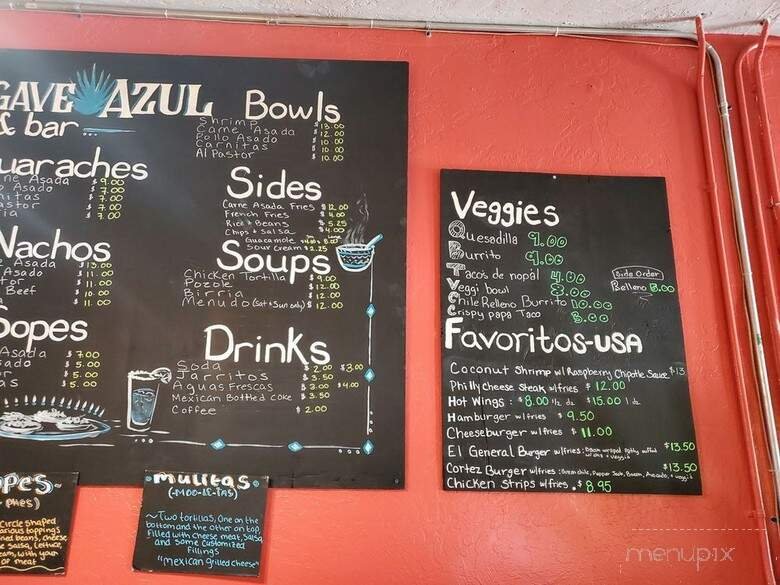 GAVE AZUL
& bar
Bowls
Shrimp $ 13.00
Carne Asada $ 12.00
Pollo Asado $ 10.00
Carnitas $ 10.00
Al Pastor $ 10.00
uaraches
ne Asada $ 9.00
o Asado $ 7.00
nitas $ 7.00
astor $ 7.00
ria $ 7.00
Sides
Carne Asada Fries $ 12.00
French Fries $ 4.00
Rice & Beans $ 5.25
Chips & Salsa $ 4.00
Guacamole
Sour Cream $ 2.25
Nachos
Asada $ 13.00
Asado $ 11.00
tor $ 11.00
Beef $ 10.00
a $ 11.00
Soups
Chicken Tortilla $ 9.00
Pozole $ 12.00
Birria $ 12.00
Menudo (Sat & Sun only) $ 12.00
Sopes
Asada $ 7.00
sado $ 5.00
or $ 5.00
as $ 5.00
Drinks
Soda $ 2.00 $ 3.00
Jarritos $ 3.50
Aguas Frescas $ 3.00 $ 4.00
Mexican Bottled Coke $ 3.50
Coffee $ 2.00
Veggies
Quesadilla 9.00
Burrito 9.00
Tacos de nopal 4.00
Veggi bowl 8.00
Chile Relleno Burrito 10.00
Crispy papa Taco 8.00
Side Order
Relleno 8.00
Favoritos-USA
Coconut Shrimp w/ Raspberry Chipotle Sauce $ 13
Philly Cheese Steak w/fries $ 12.00
Hot Wings: $ 8.00 1/2 dz $ 15.00 1 dz
Hamburger w/fries $ 9.50
Cheeseburger w/fries $ 11.00
El General Burger w/fries: Bacon wrapped patty stuffed $ 13.50
Cortez Burger w/fries: Green chile, Pepper Jack, Bacon, Avocado, + veggi $ 13.50
Chicken Strips w/fries $ 8.95
pes~
Circle shaped
arious toppings
ried beans, cheese,
e salsa, lettuce,
eam, with your
of meat
~Mulitas~
(-MOO-LE-TAS)
~Two tortillas, One on the
bottom and the other on top,
filled with cheese meat, salsa
and some customized
fillings
"Mexican grilled cheese"
menupix